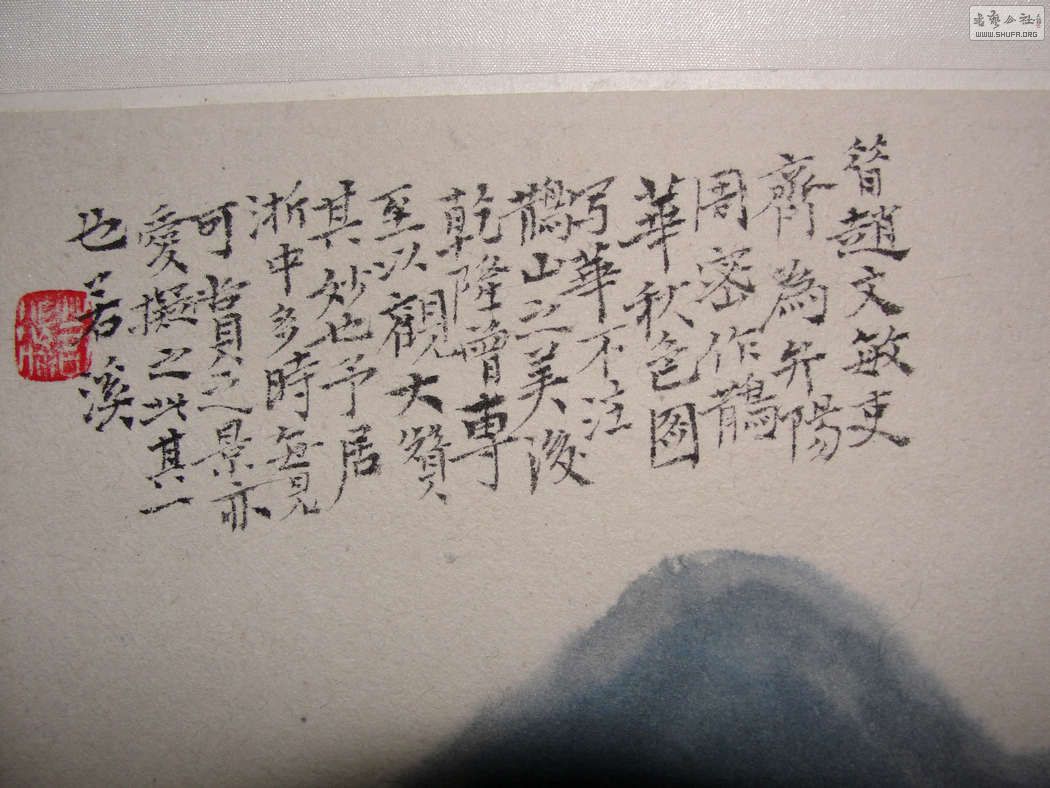 昝趙文敏吏
齊為弁陽
周密作鵲
華秋色圖
写華不注
鵲山之美後
乾隆曾專
至以觀大贊
其妙也予居
浙中多時每見
可賞之景亦
愛擬之此其一
也若溪
WWW.SHUFA.ORG